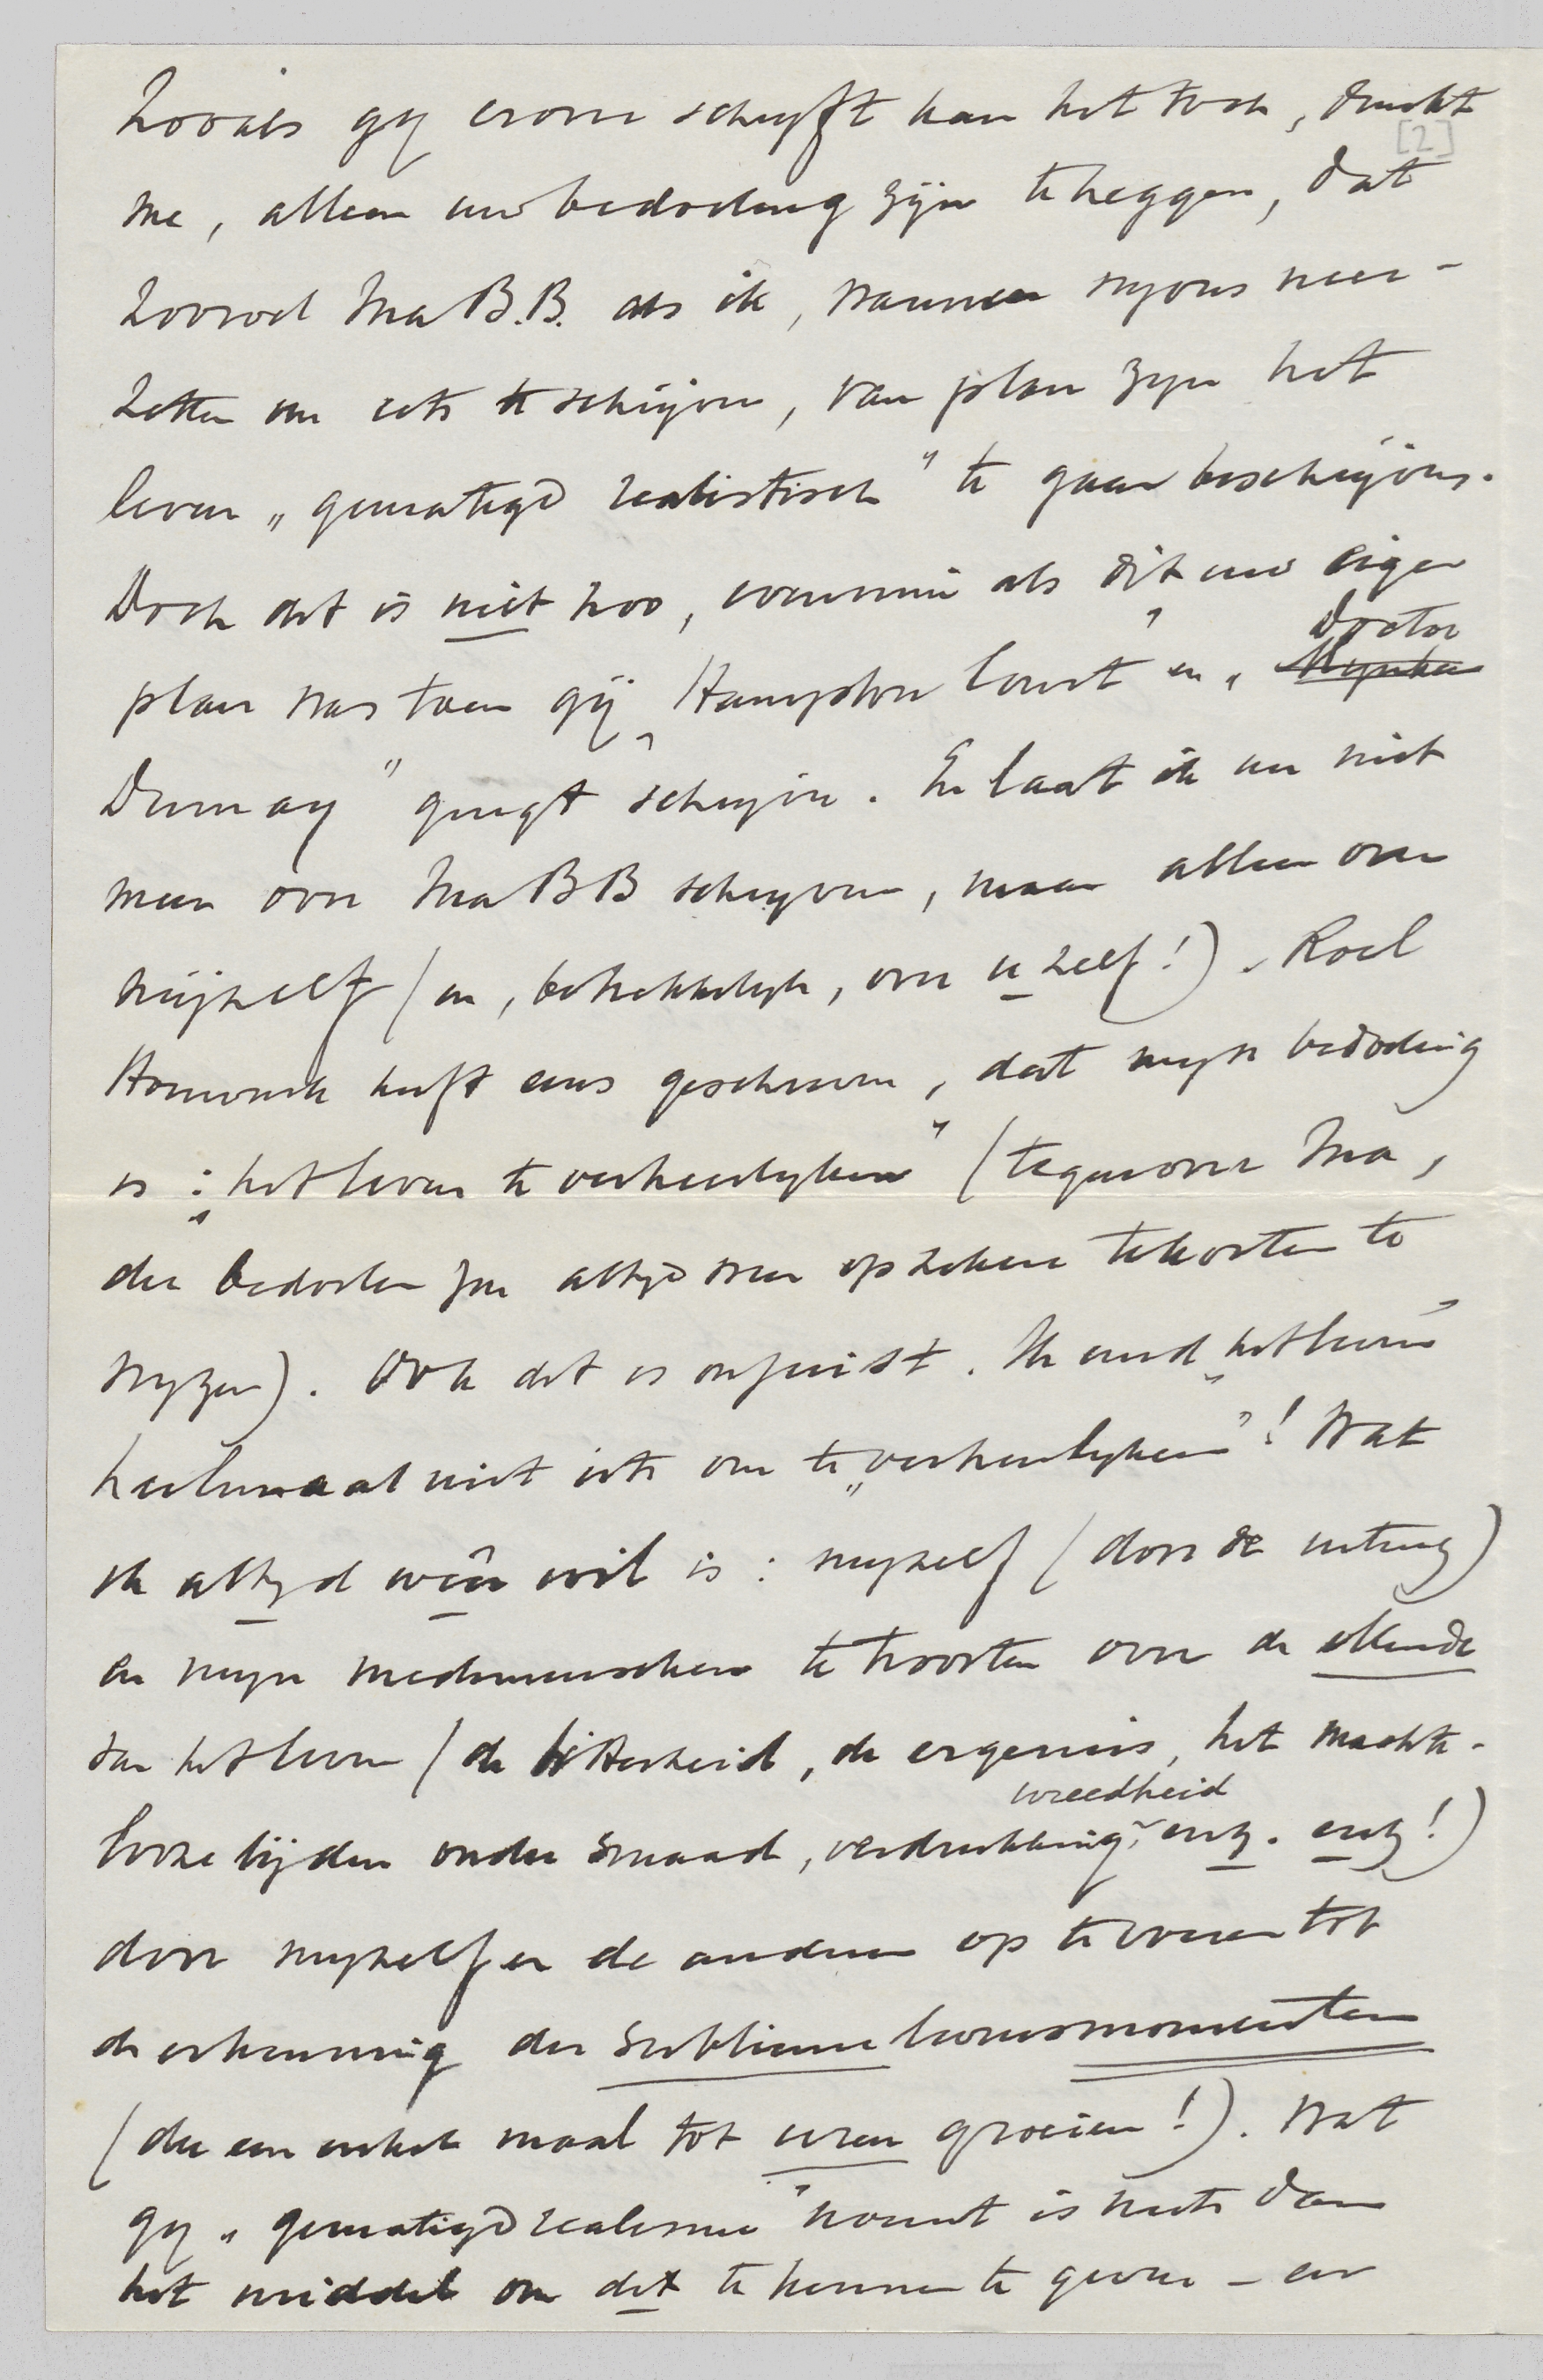 Zooals gij erover schrijft kan het toch, dunkt
[2]
me, alleen uw bedoeling zijn te zeggen, dat
zoowel Ina B.B. als ik, wanneer wij ons neer-
zetten om iets te schrijven, van plan zijn het
leven „gematigd realistisch" te gaan beschrijven.
Doch dit is niet zoo, evenmin als dit uw eigen
plan was toen gij „Hampton Court" en „ Doctor
Dumay" gingt schrijven. En laat ik nu niet
meer over Ina BB schrijven, maar alleen over
mijzelf (en, betrekkelijk, over u zelf!). Roel
Houwink heeft eens geschreven, dat mijn bedoeling
is: „het leven te verheerlijken" (tegenover Ina,
die bedoelen zou altijd weer op zekere tekorten te
wijzen). Ook dit is onjuist. Ik vind „het leven"
heelemaal niet iets om te „verheerlijken"! Wat
ik altijd wéér wil is: mijzelf (door de uiting)
en mijn medemenschen te troosten over de ellende
van het leven (de bitterheid, de ergernis, het machte-
looze lijden onder smaad, verdrukking, wreedheid enz. enz!)
door mijzelf en de anderen op te voeren tot
de erkenning der sublieme levensmomenten
(die een enkele maal tot uren groeien!). Wat
gij „gematigd realisme" noemt is niets dan
het middel om dit te kennen te geven – en